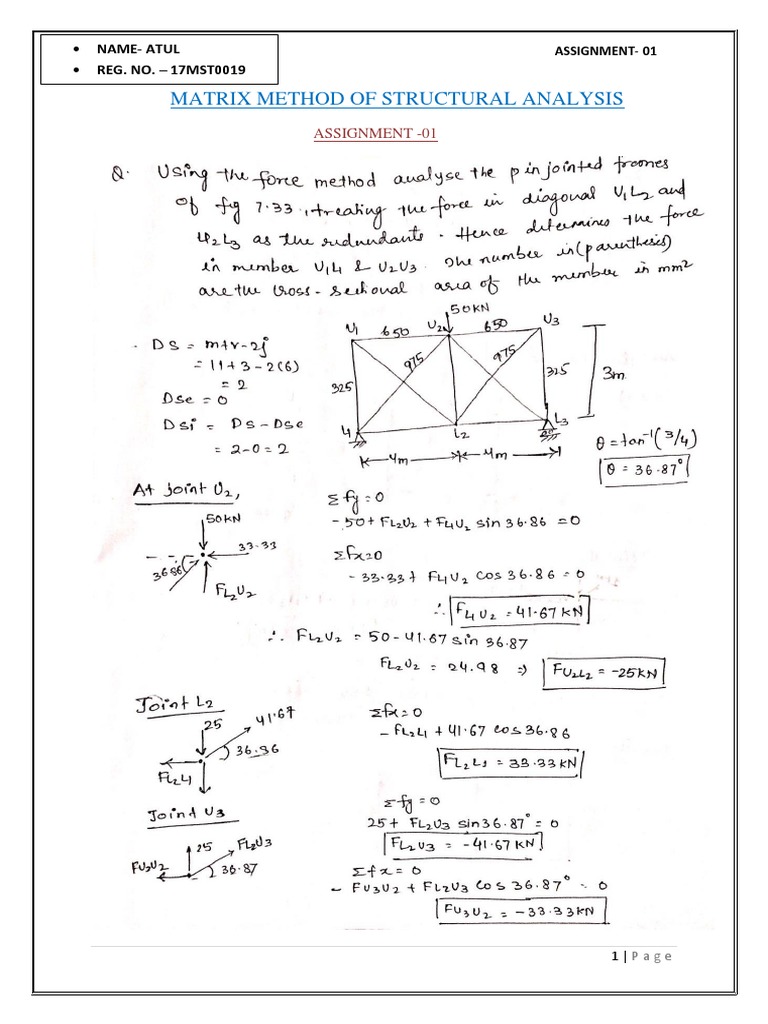 • NAME- ATUL
• REG. NO. – 17MST0019
ASSIGNMENT- 01
MATRIX METHOD OF STRUCTURAL ANALYSIS
ASSIGNMENT -01
Q. Using the force method analyse the pin jointed frames
of fig 7.33, treating the force in diagonal U1L2 and
U2L3 as the redundants. Hence determines the force
in member U1L1 & U2U3. The number in (parenthesis)
are the cross-sectional area of the member in mm2
50KN
U1 650 U2 650 U3
975 975
325 325
3m
L1 L2 L3
4m 4m
DS = m+r-2j
= 11+3-2(6)
= 2
Dse = 0
Dsi = Ds-Dse
= 2-0 = 2
θ = tan-1(3/4)
θ = 36.87°
At joint U2,
50KN
33.33
36.86
FL2U2
Σfy=0
-50+FL2U2+FL1U2 sin 36.86 = 0
Σfx=0
-33.33+ FL1U2 cos 36.86 = 0
∴ FL1U2 = 41.67KN
∴ FL2U2 = 50-41.67 sin 36.87
FL2U2 = 24.98 ⇒ FU2L2 = -25KN
Joint L2
25 41.67
36.86
FL2L1
Σfx=0
-FL2L1 + 41.67 cos 36.86
FL2L1 = 33.33KN
Joint U3
25 FL2U3
FU3U2
36.87
Σfy=0
25+ FL2U3 sin 36.87° = 0
FL2U3 = -41.67KN
Σfx=0
- FU3U2 + FL2U3 cos 36.87° = 0
FU3U2 = -33.33KN
1 | Page